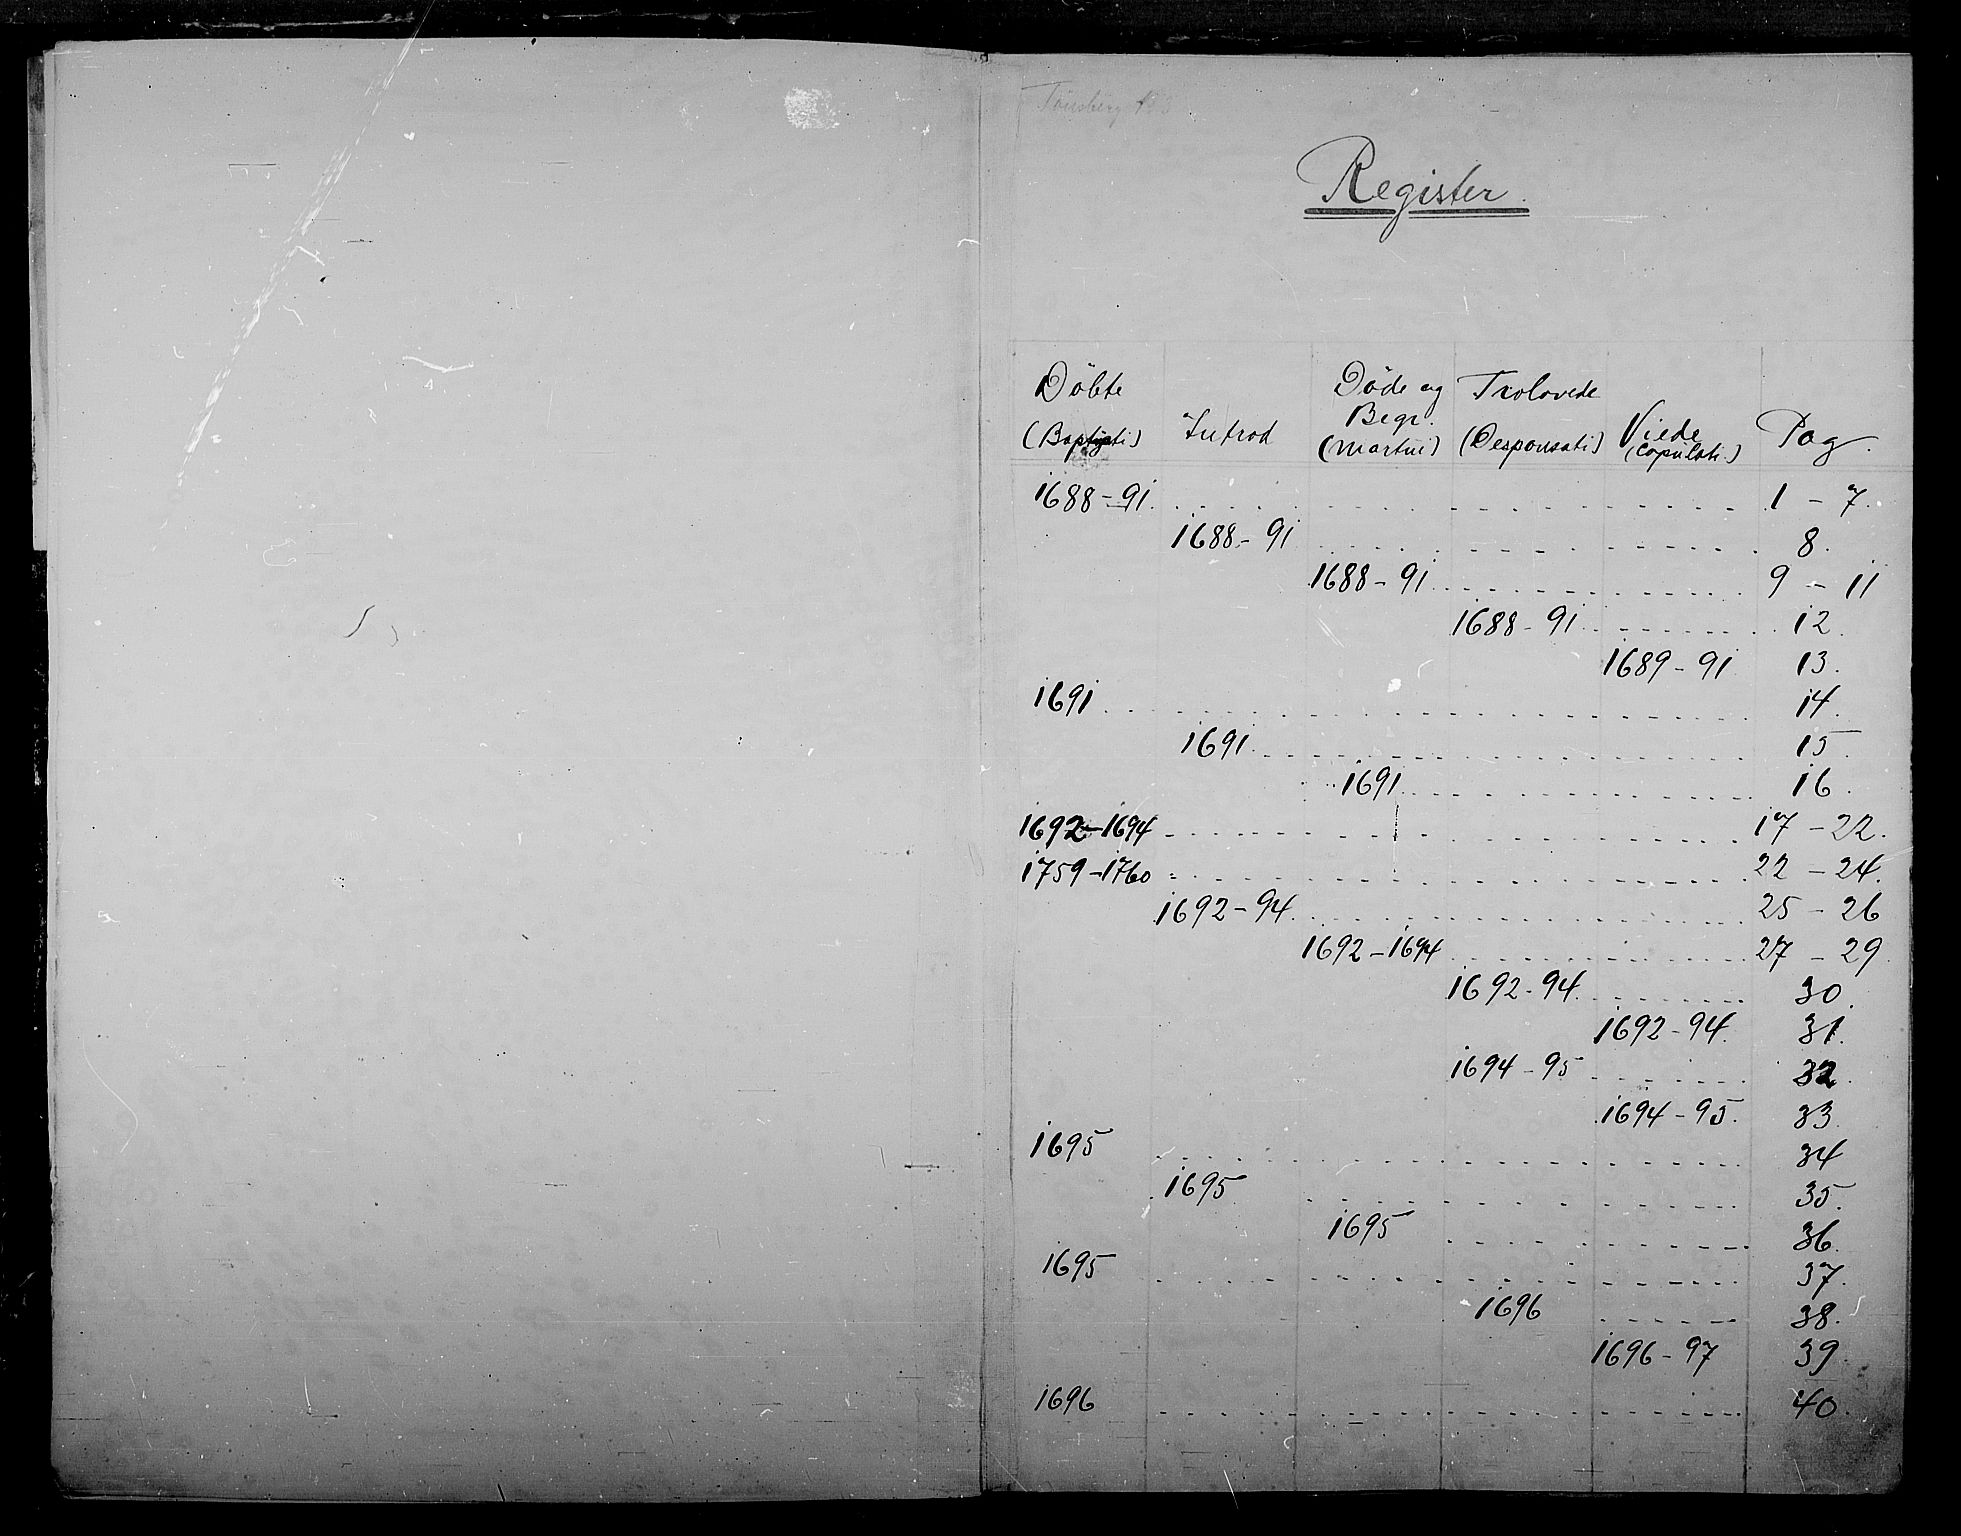 Tønsberg
Register.
Döbte (Baptisti) Introd Døde og Begr. (Mortui) Trolovede (Desponsati) Viede (Copulati) Pag.
1688-91 1 - 7.
1688-91 8.
1688-91 9 - 11
1688-91 12.
1689-91 13.
1691 14.
1691 15
1691 16.
1692-1694 17 - 22.
1759-1760 22 - 24.
1692-94 25 - 26
1692-1694 27 - 29
1692-94 30.
1692-94. 31.
1694-95 32.
1694-95. 33.
1695 34
1695 35.
1695 36.
1695 37.
1696 38.
1696-97 39.
1696 40.